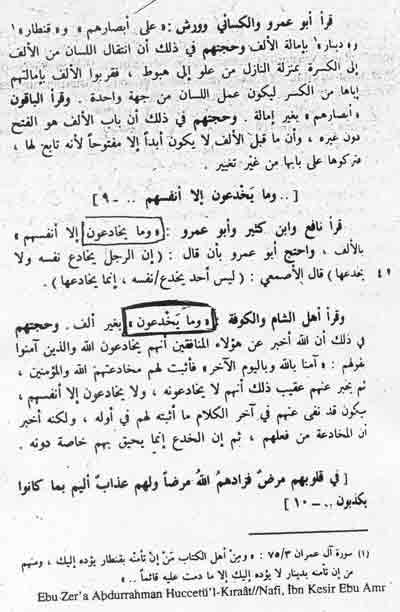 قرأ أبو عمرو والكسائي وورش : « على أبصارهم » و« قنطار »¹
و« دينار » بإمالة الألف وحجتهم في ذلك أن انتقال اللسان من الألف
إلى الكسرة بمنزلة النازل من علو إلى هبوط ، فقربوا الألف بإمالتهم
إياها من الكسر ليكون عمل اللسان من جهة واحدة . وقرأ الباقون
« أبصارهم » بغير إمالة . وحجتهم في ذلك أن باب الألف هو الفتح
دون غيره ، وأن ما قبل الألف لا يكون أبداً إلا مفتوحاً لأنه تابع لها ،
فتركوها على بابها من غير تغيير .
[ .. وما يَخْدعون إلا أنفسهم .. – ٩ ]
قرأ نافع وابن كثير وأبو عمرو : « وما يخادعون إلا أنفسهم »
بالألف ، واحتج أبو عمرو بأن قال : ( إن الرجل يخادع نفسه ولا
يخدعها ) قال الأصمعي : ( ليس أحد يخدع/نفسه ، إنما يخادعها ) .
٤١
وقرأ أهل الشام والكوفة : « وما يَخْدعون » بغير ألف . وحجتهم
في ذلك أن الله أخبر عن هؤلاء المنافقين أنهم يخادعون الله والذين آمنوا
بقولهم : « آمنا بالله وباليوم الآخر » فأثبت لهم مخادعتهم الله والمؤمنين ،
ثم يخبر عنهم عقيب ذلك أنهم لا يخادعونه ، ولا يخادعون إلا أنفسهم ،
فيكون قد نفى عنهم في آخر الكلام ما أثبته لهم في أوله ، ولكنه أخبر
أن المخادعة من فعلهم ، ثم إن الخدع إنما يحيق بهم خاصة دونه .
[ في قلوبهم مرضٌ فزادهمُ اللهُ مرضاً ولهم عذابٌ أليم بما كانوا
يكذبون .. – ١٠ ]
(١) سورة آل عمران ٧٥/٣ : « ومِنْ أهل الكتاب مَنْ إنْ تأمنْه بقنطار يؤده إليك ، ومنهم
من إن تأمنه بدينار لا يؤده إليك إلا ما دمت عليه قائماً » ..
Ebu Zer'a Abdurrahman Huccetü'l-Kıraât//Nafi, İbn Kesir Ebu Amr